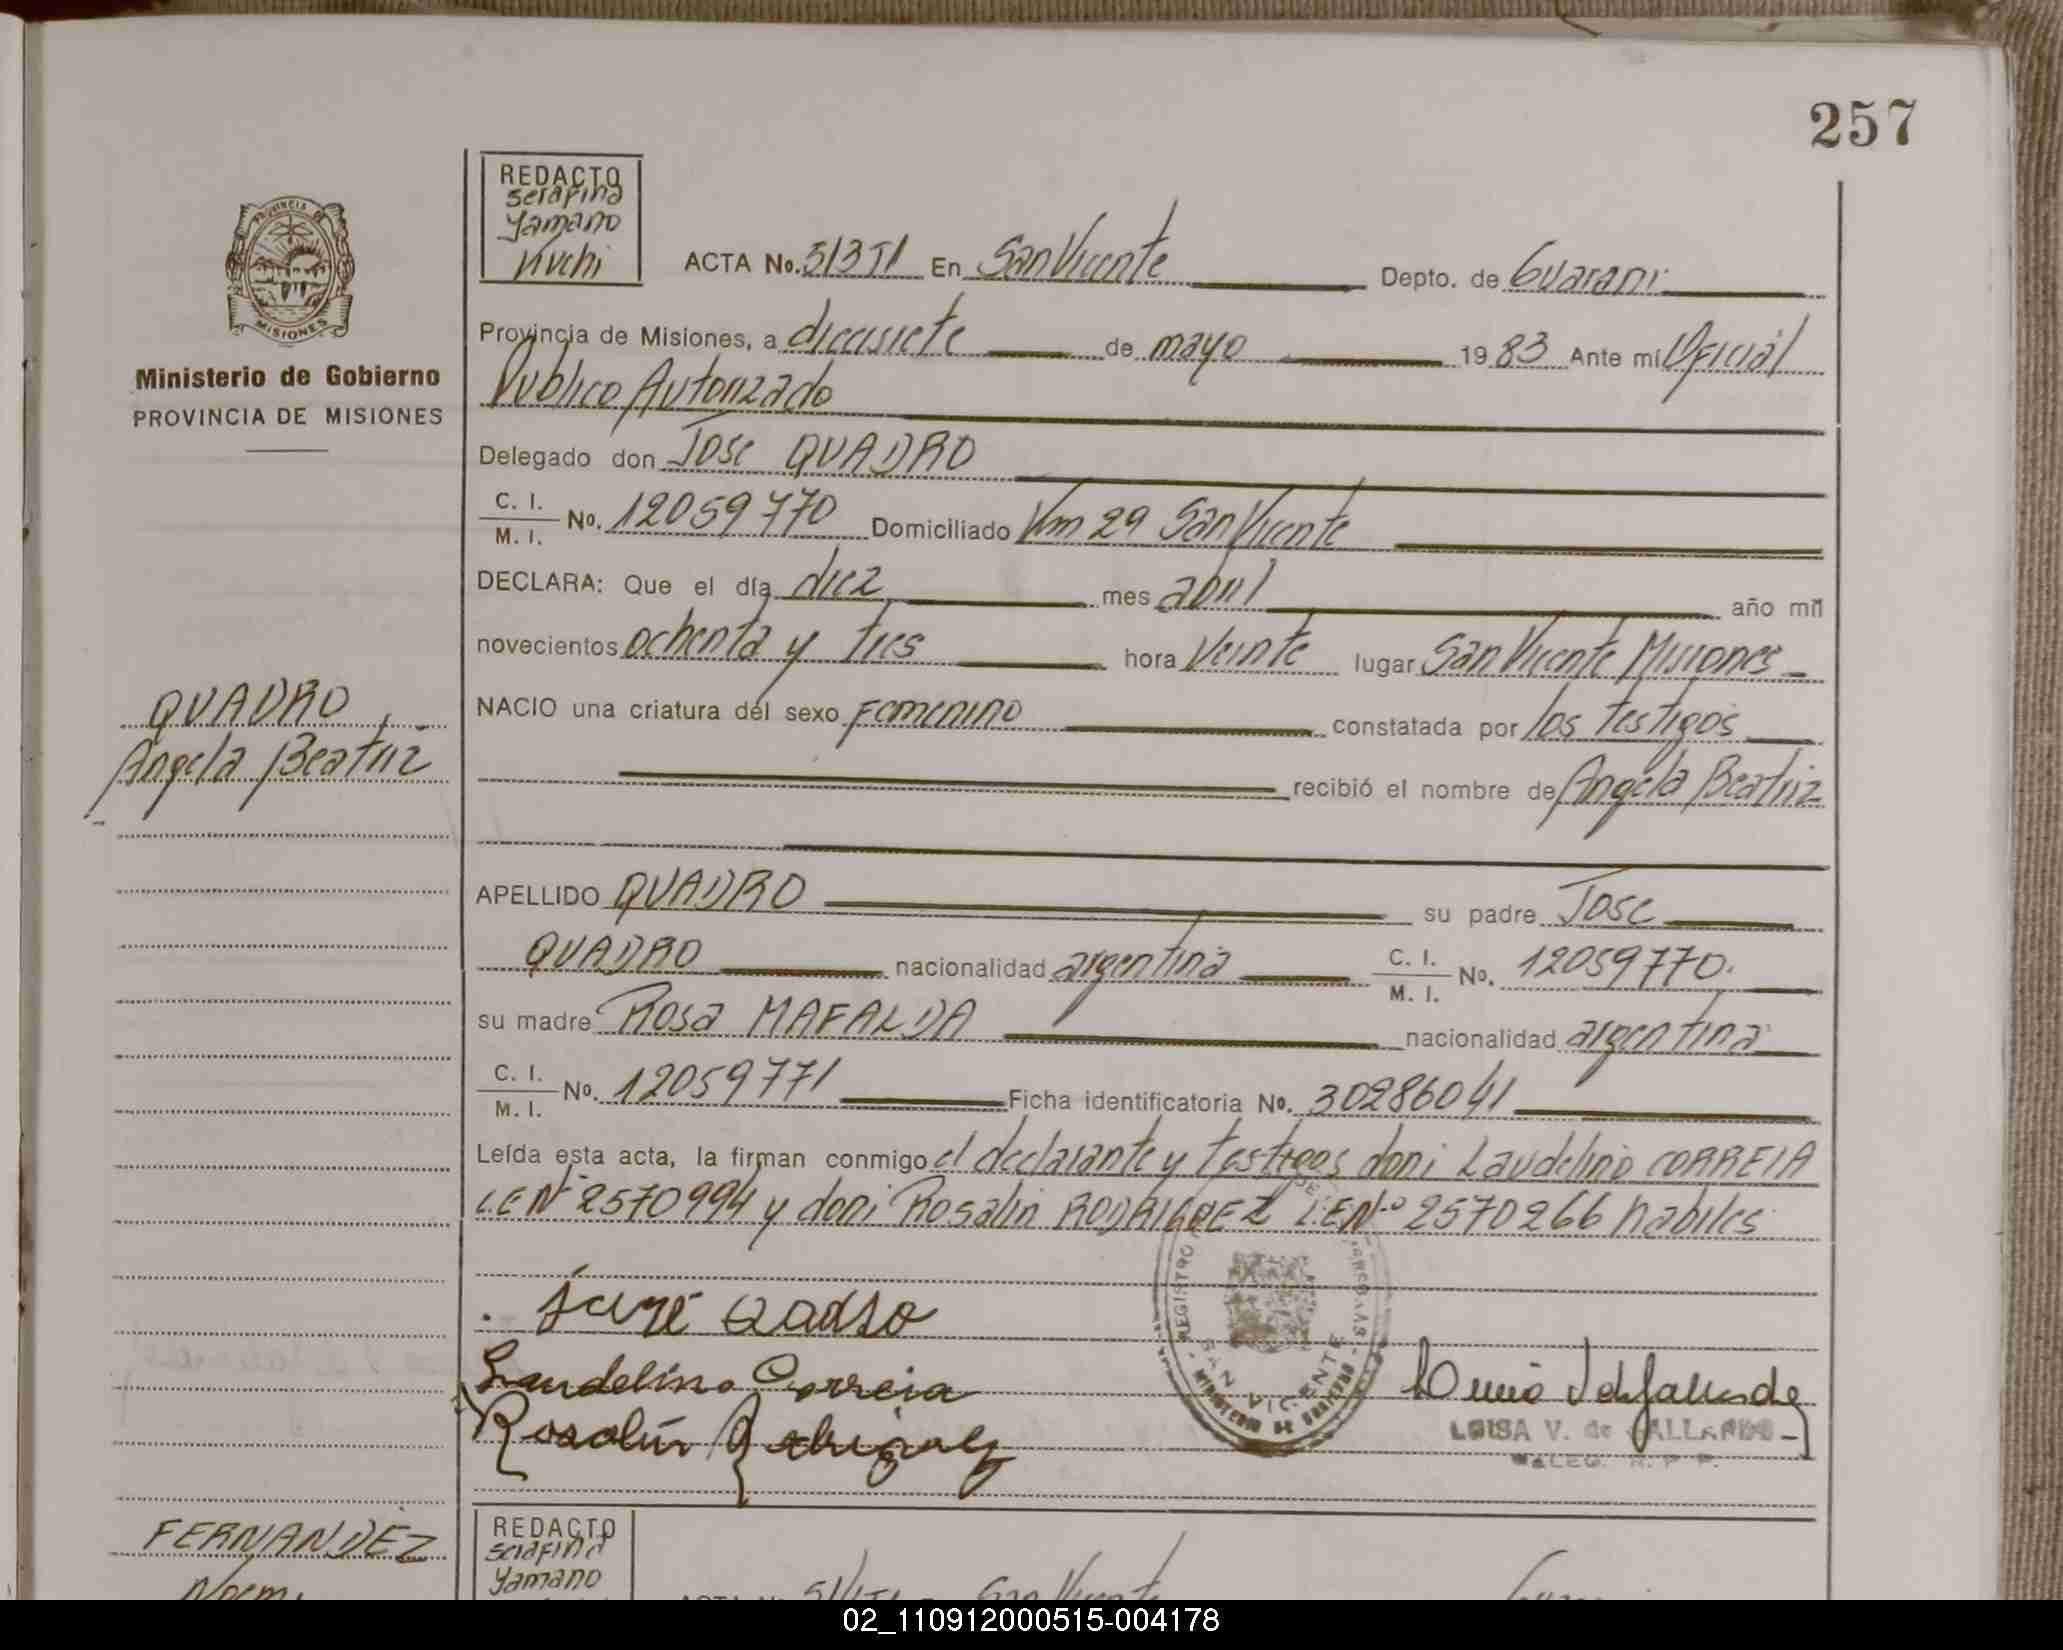 257
REDACTO
Serafina
Yamano
Kivchi
PROVINCIA DE
MISIONES
Ministerio de Gobierno
PROVINCIA DE MISIONES
ACTA No. 513 TI En San Vicente Depto. de Guarani
Provincia de Misiones, a diecisiete de mayo 1983 Ante mí Oficial
Publico Autorizado
Delegado don Jose QUADRO
C. I.
M. I. No. 12059770 Domiciliado Km 29 San Vicente
DECLARA: Que el día diez mes abril año mil
novecientos ochenta y tres hora Veinte lugar San Vicente Misiones
QUADRO
Angela Beatriz
NACIO una criatura del sexo Femenino constatada por los testigos
recibió el nombre de Angela Beatriz
APELLIDO QUADRO su padre Jose
QUADRO nacionalidad argentina C. I.
M. I. No. 12059770.
su madre Rosa MAFALDA nacionalidad argentina
C. I.
M. I. No. 12059771 Ficha identificatoria No. 30286041
Leída esta acta, la firman conmigo el declarante y testigos doni Laudelino CORREIA
L.E Nº 2570994 y doni Rosalin RODRIGUEZ L.E Nº 2570266 habiles
José Qadro
Laudelino Correia
Rosalin
REGISTRO
SAN VICENTE
MINISTERIO DE GOBIERNO
LUISA V. de GALLARDO
DELEG. R. P. P.
FERNANDEZ
Noemi
REDACTO
Serafina
Yamano
ACTA No. 514 TI San Vicente
02_110912000515-004178